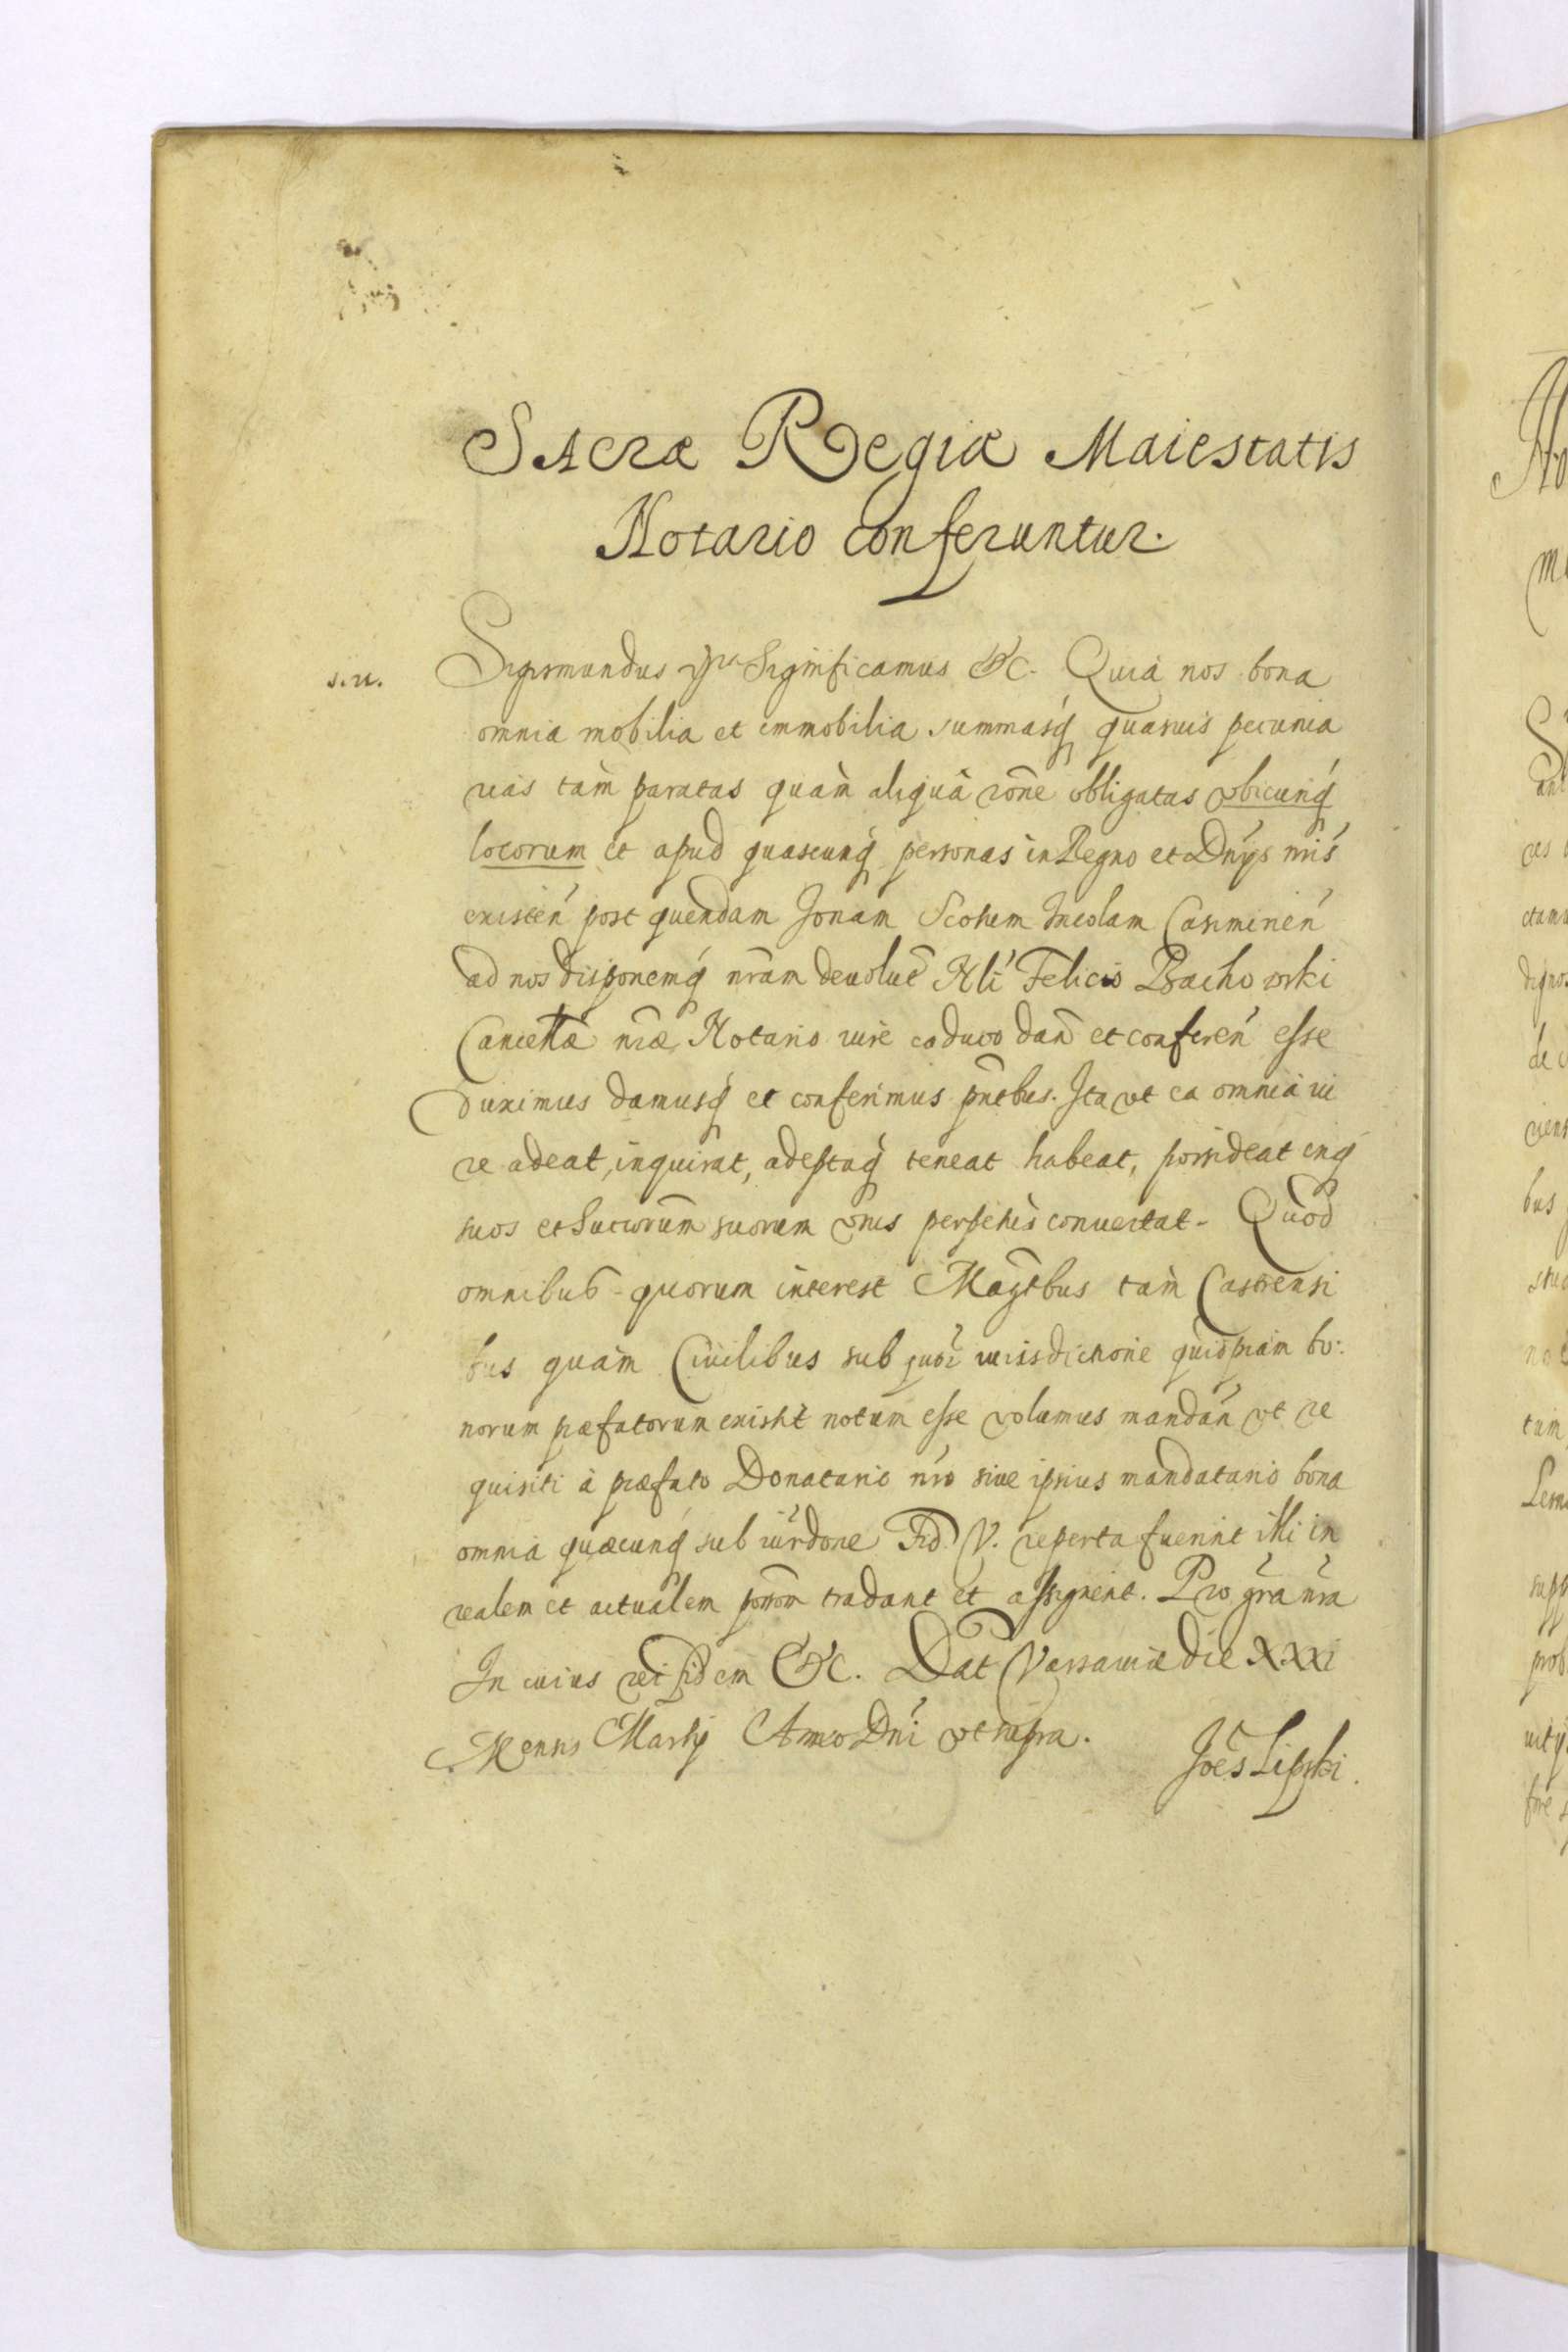 Sacræ Regiæ Maiestatis
Notario conferuntur.
s.n. Sigismundus Significamus &c. Quia nos bona
omnia mobilia et immobilia summasq́ quasuis pecunia
rias tàm paratas quàm aliquâ rõne obligatas vbicunq́
locorum et apud quascunq́ personas in Regno et Dnÿs nris
existeń post quendam Jonam Scotum Incolam
ad nos disponemq́ nr̃am deuolut̃ Nlĩ Felicio
Cancellæ nræ Notario iure caduco dañ et confereń esse
duximus damusq́ et conferimus pñtbus. Ita vt ea omnia iu
re adeat, inquirat, adeptaq́ teneat habeat, possideat inq́
suos et Succorũm suorum vsus perpetuis conuertat. Quòd
omnibus quorum interest Magtbus tàm Castrensi
bus quàm Ciuilibus sub quor̃ iurisdictione quidpiam bo:
norum præfatorum exisht notum esse volumus mandañ vt re
quisiti à præfato Donatario nro siue ipsius mandatario bona
omnia quæcunq́ sub iurdone Fid. V. reperta fuerint illi in
realem et actualem possom̃ tradant et assignent. Pro gr̃a nr̃a
In cuius rei fidem &c. Dat Varsauiæ die XXXI
Mensis Martÿ Anno Dni vt supra.
Joẽs Lipski.